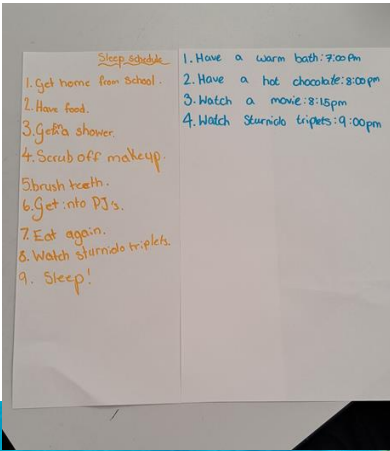 Sleep schedule
1. Get home from School.
2. Have food.
3. Get in a shower.
4. Scrub off makeup.
5. brush teeth.
6. Get into PJ's.
7. Eat again.
8. Watch sturniolo triplets.
9. Sleep!
1. Have a warm bath: 7:00pm
2. Have a hot chocolate: 8:00pm
3. Watch a movie: 8:15pm
4. Watch Sturniolo triplets: 9:00pm